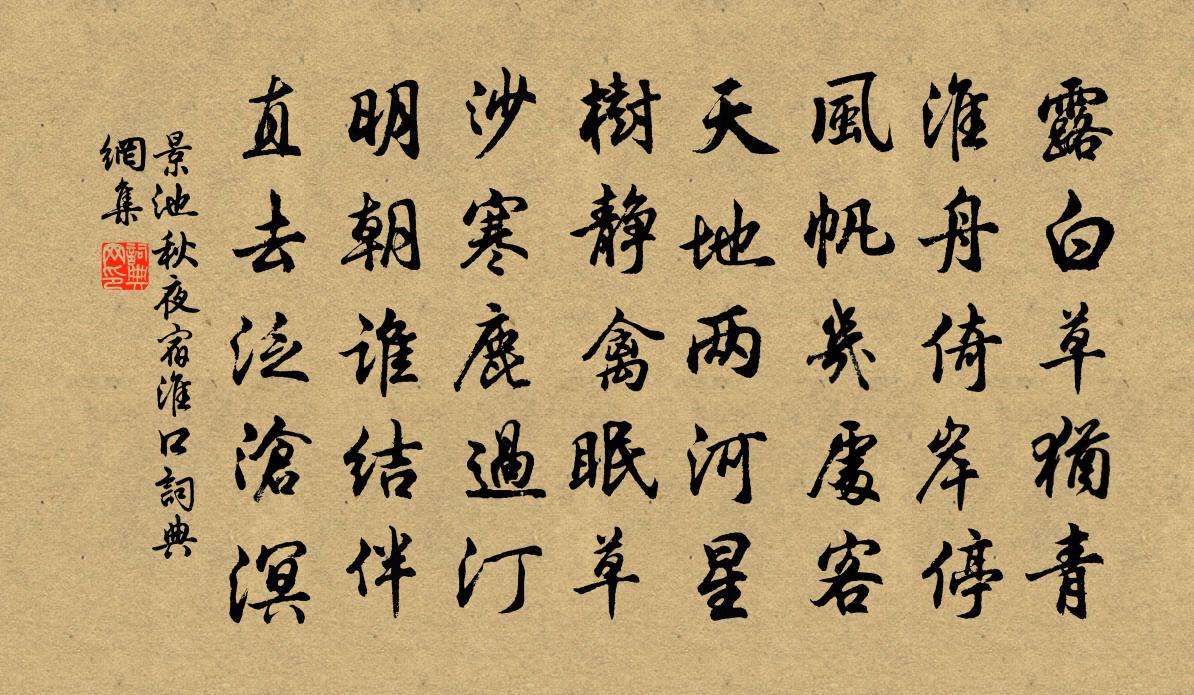 露白草猶青
淮舟倚岸停
風帆幾處客
天地两河星
樹静禽眠草
沙寒鹿過汀
明朝誰結伴
直去泛滄溟
景池秋夜宿淮口詞典
網集
詞典
网印